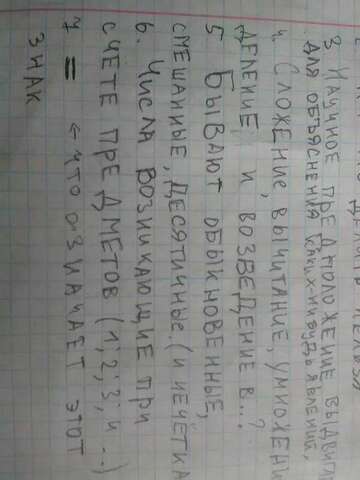 3 Научное предположение, выдвиг
для объяснения каких-нибудь явлений.
4. Сложение, вычитание, умножени
деление, и возведение в...?
5 Бывают обыкновенные,
смешанные, десятичные. (и нечётка
6. Числа возникающие при
счёте предметов (1; 2; 3; и ...)
7 = ← что означает этот
знак